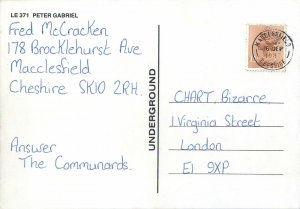 LE 371 PETER GABRIEL
Fred McCracken
178 Brocklehurst Ave
Macclesfield
Cheshire SK10 2RH.
Answer
The Communards.
UNDERGROUND
CHART, Bizarre,
1 Virginia Street
London
E1 9XP